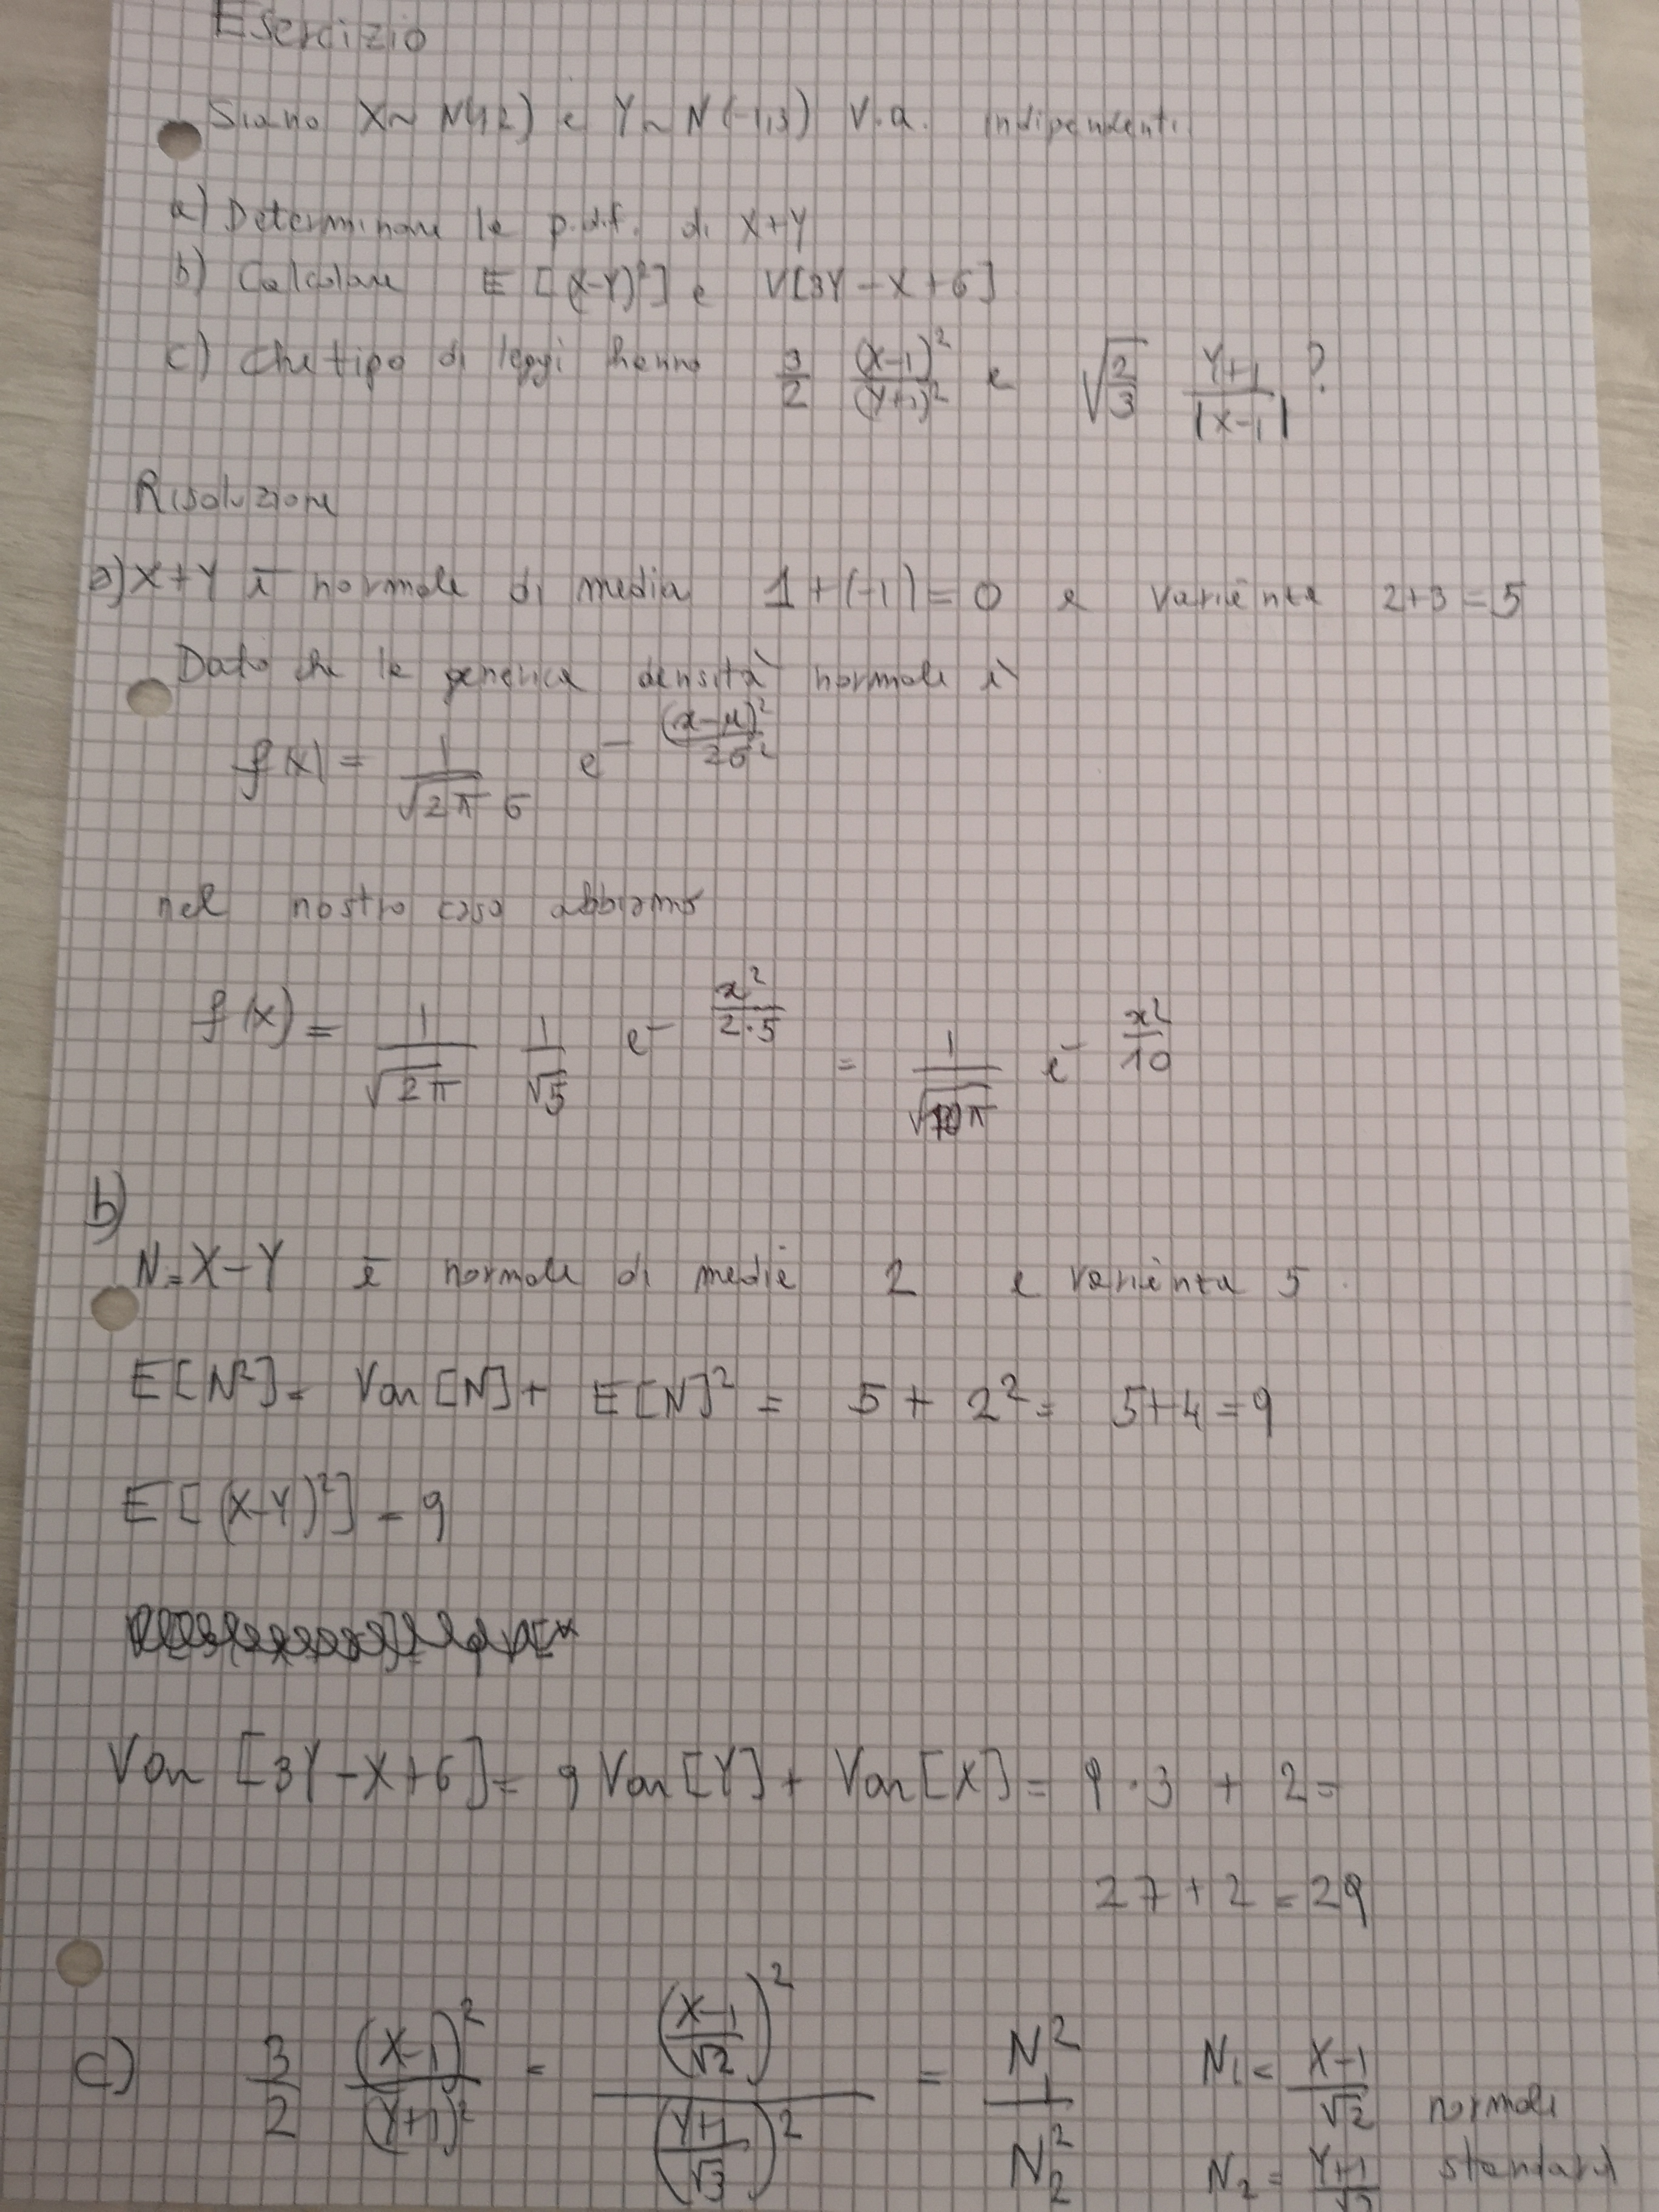 Esercizio
Siano X~N(1,2) e Y~N(-1,3) v.a. indipendenti
a) Determinare la p.d.f. di X+Y
b) Calcolare E[(X-Y)²] e V[3Y-X+6]
c) Che tipo di leggi hanno 3/2 (X-1)²/(Y+1)² e √(2/3) (Y+1)/|X-1| ?
Risoluzione
a) X+Y è normale di media 1+(-1)=0 e varianza 2+3=5
Dato che la generica densità normale è
f(x) = 1/(√2π σ) e^-(x-μ)²/2σ²
nel nostro caso abbiamo
f(x) = 1/√2π 1/√5 e^-x²/2·5 = 1/√10π e^-x²/10
b)
N=X-Y è normale di media 2 e varianza 5.
E[N²]= Var[N]+ E[N]² = 5+2²= 5+4=9
E[(X-Y)²]=9
Var [3Y-X+6]= 9 Var[Y]+ Var[X]= 9·3 + 2=
27+2=29
c) 3/2 (X-1)²/(Y+1)² = ((X-1)/√2)²/((Y+1)/√3)² = N₁²/N₂² N₁= (X-1)/√2 normali
N₂= (Y+1)/√3 standard